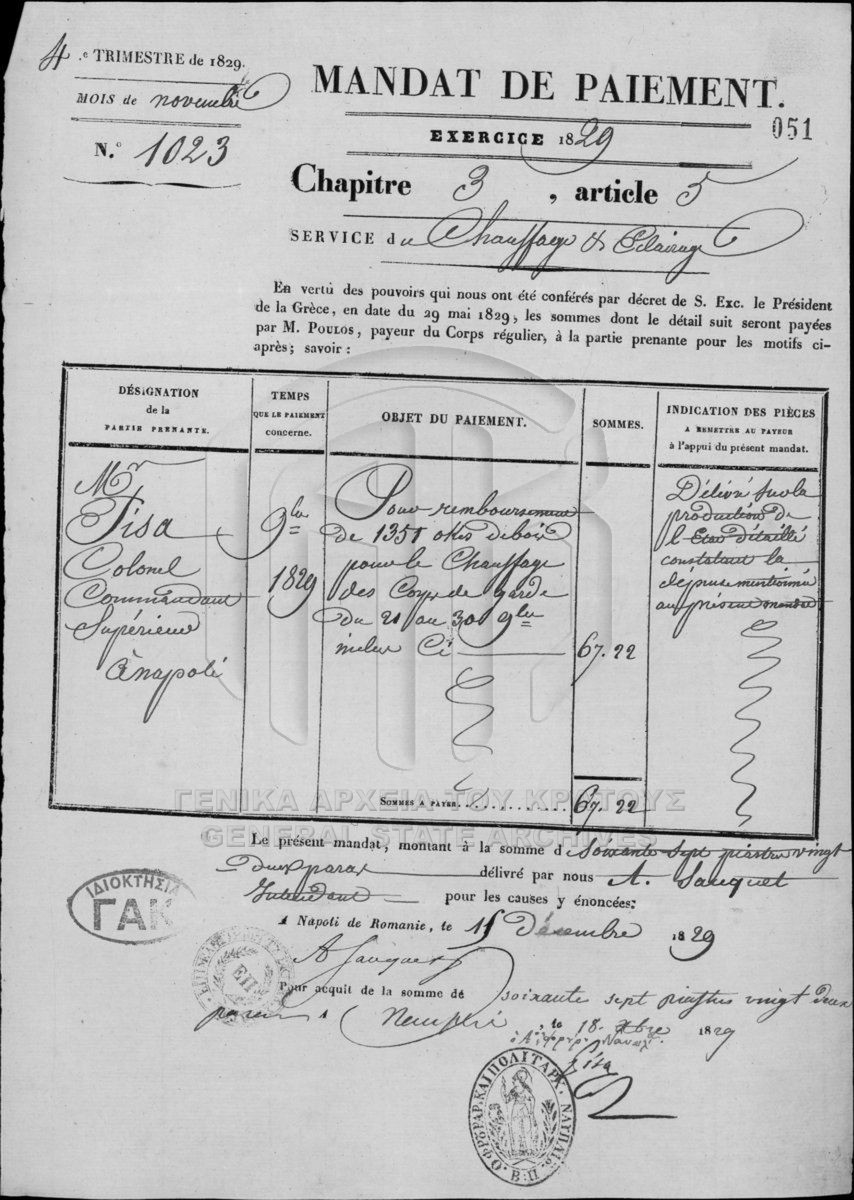 4 .e TRIMESTRE de 1829.
MOIS de novembre
N.° 1023
MANDAT DE PAIEMENT.
051
EXERCICE 1829
Chapitre 3, article 5
SERVICE du Chauffage & Eclairage
En vertu des pouvoirs qui nous ont été conférés par décret de S. Exc. le Président
de la Grèce, en date du 29 mai 1829, les sommes dont le détail suit seront payées
par M. POULOS, payeur du Corps régulier, à la partie prenante pour les motifs ci-
après; savoir :
DÉSIGNATION
de la
PARTIE PRENANTE.
Mr
Pisa
Colonel
Commandant
Supérieur
à napoli
TEMPS
QUE LE PAIEMENT
concerne.
9bre
1829
OBJET DU PAIEMENT.
Pour remboursement
de 1351 okes de bois
pour le Chauffage
des Corps de garde
du 21 au 30 9bre
inclus Ci
SOMMES.
67.22
INDICATION DES PIÈCES
A REMETTRE AU PAYEUR
à l'appui du présent mandat.
Délivré sur la
production de
l'Etat détaillé
constatant la
dépense mentionnée
au présent mandat
SOMMES A PAYER. 67.22
ΓΕΝΙΚΑ ΑΡΧΕΙΑ ΤΟΥ ΚΡΑΤΟΥΣ
GENERAL STATE ARCHIVES
Le présent mandat, montant à la somme d soixante sept piastres vingt
deux paras délivré par nous A. Sauquet
Intendant pour les causes y énoncées;
A Napoli de Romanie, le 15 Décembre 1829
ΙΔΙΟΚΤΗΣΙΑ
ΓΑΚ
A Sauquet
Pour acquit de la somme de soixante sept piastres vingt deux
paras A Neuplie, le 18 Xbre 1829
Pisa
Ο ΦΡΟΥΡΑΡ. ΚΑΙ ΠΟΛΙΤΑΡΧ. ΝΑΥΠΛΙΟΥ
Β: Π: